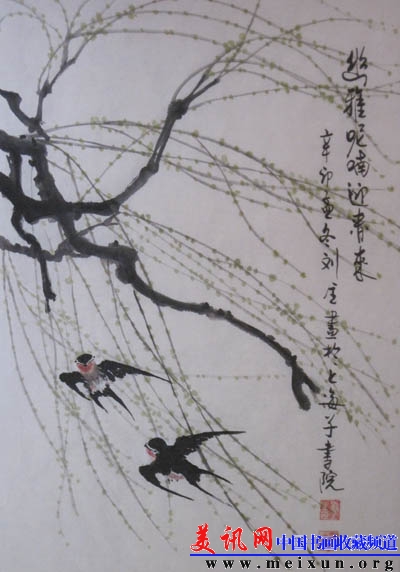 幽雅呢喃迎春来
辛卯孟冬刘 画于上海 书院
美讯网 中国书画收藏频道
www.meixun.org